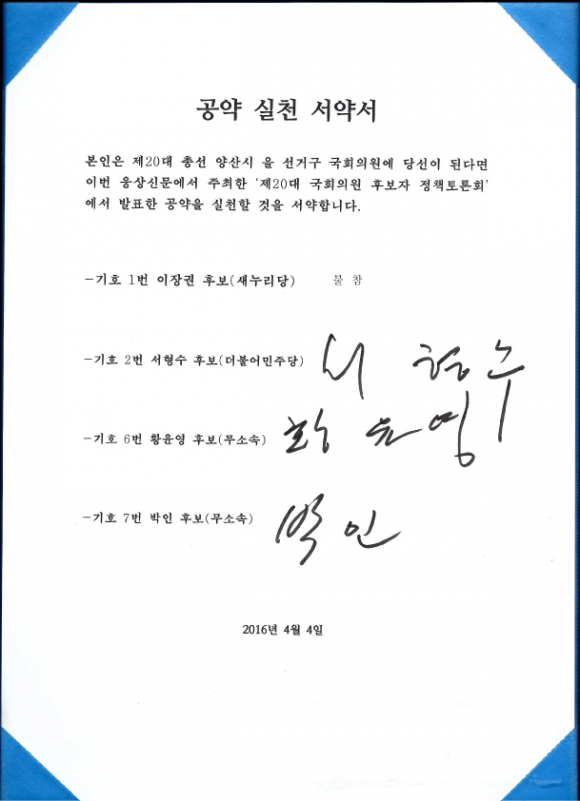 공약 실천 서약서
본인은 제20대 총선 양산시 을 선거구 국회의원에 당선이 된다면
이번 웅상신문에서 주최한 '제20대 국회의원 후보자 정책토론회'
에서 발표한 공약을 실천할 것을 서약합니다.
-기호 1번 이장권 후보(새누리당) 불 참
-기호 2번 서형수 후보(더불어민주당) 서 형 수
-기호 6번 황윤영 후보(무소속) 황 윤 영
-기호 7번 박인 후보(무소속) 박 인
2016년 4월 4일